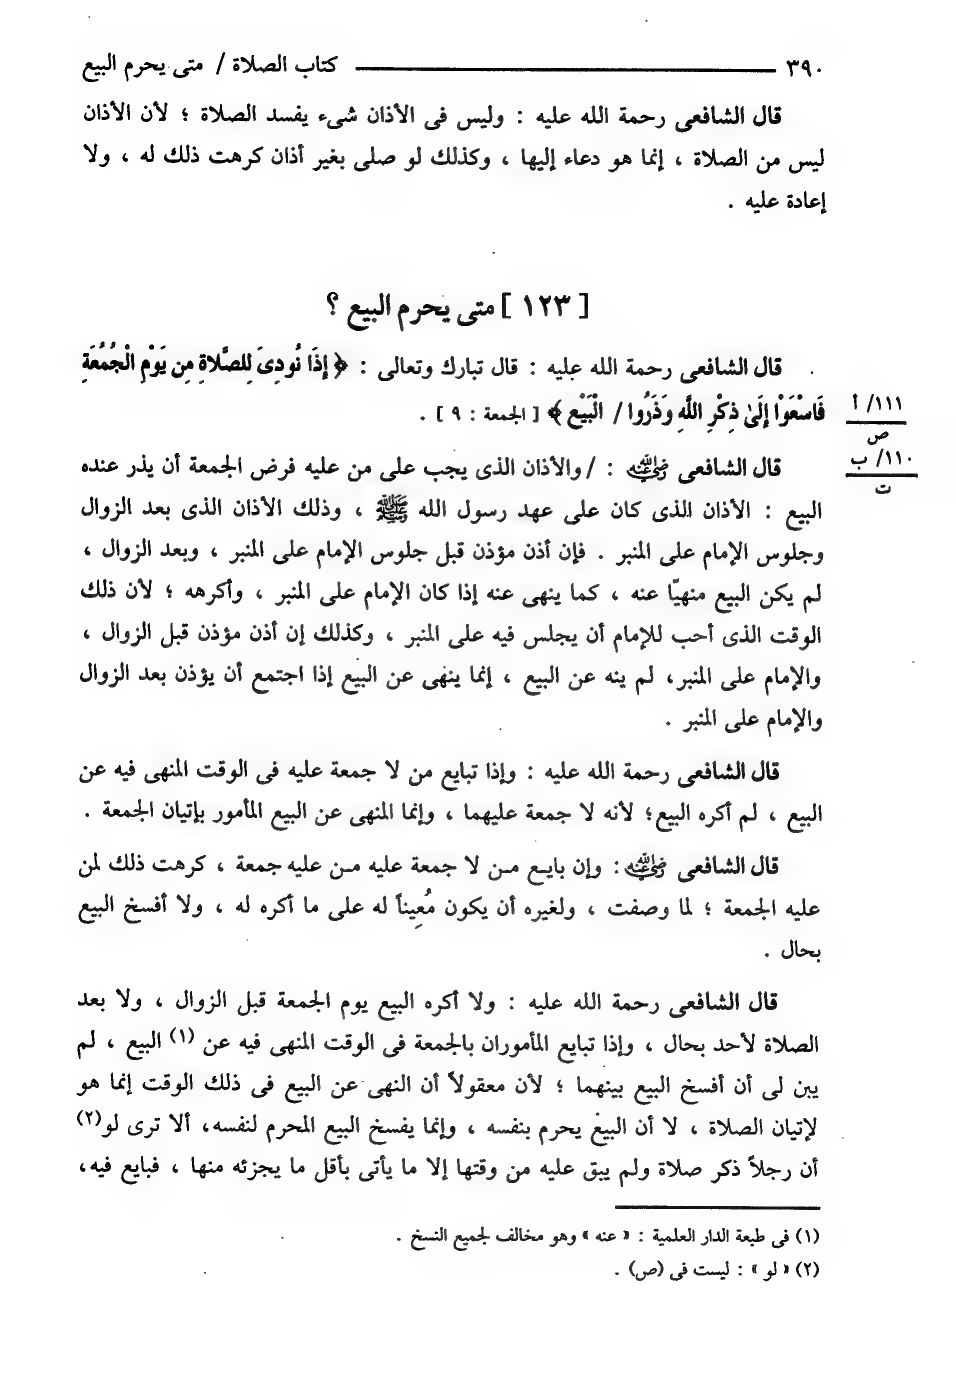 ٣٩٠ كتاب الصلاة / متى يحرم البيع
قال الشافعى رحمة الله عليه : وليس فى الأذان شىء يفسد الصلاة ؛ لأن الأذان
ليس من الصلاة ، إنما هو دعاء إليها ، وكذلك لو صلى بغير أذان كرهت ذلك له ، ولا
إعادة عليه .
[ ١٢٣ ] متى يحرم البيع ؟
قال الشافعى رحمة الله عليه : قال تبارك وتعالى : ﴿ إِذَا نُودِىَ لِلصَّلاةِ مِن يَوْمِ الْجُمُعَةِ
فَاسْعَوْا إِلَىٰ ذِكْرِ اللَّهِ وَذَرُوا / الْبَيْعَ ﴾ [ الجمعة : ٩ ] .
١١١/ أ
ص
١١٠/ ب
ت
قال الشافعى رضي الله عنه : / والأذان الذى يجب على من عليه فرض الجمعة أن يذر عنده
البيع : الأذان الذى كان على عهد رسول الله ﷺ ، وذلك الأذان الذى بعد الزوال
وجلوس الإمام على المنبر . فإن أذن مؤذن قبل جلوس الإمام على المنبر ، وبعد الزوال ،
لم يكن البيع منهيًا عنه ، كما ينهى عنه إذا كان الإمام على المنبر ، وأكرهه ؛ لأن ذلك
الوقت الذى أحب للإمام أن يجلس فيه على المنبر ، وكذلك إن أذن مؤذن قبل الزوال ،
والإمام على المنبر، لم ينه عن البيع ، إنما ينهى عن البيع إذا اجتمع أن يؤذن بعد الزوال
والإمام على المنبر .
قال الشافعى رحمة الله عليه : وإذا تبايع من لا جمعة عليه فى الوقت المنهى فيه عن
البيع ، لم أكره البيع؛ لأنه لا جمعة عليهما ، وإنما المنهى عن البيع المأمور بإتيان الجمعة .
قال الشافعى رضي الله عنه : وإن بايـع مـن لا جمعة عليه مـن عليه جمعة ، كرهت ذلك لمن
عليه الجمعة ؛ لما وصفت ، ولغيره أن يكون مُعِينًا له على ما أكره له ، ولا أفسخ البيع
بحال .
قال الشافعى رحمة الله عليه : ولا أكره البيع يوم الجمعة قبل الزوال ، ولا بعد
الصلاة لأحد بحال ، وإذا تبايع المأموران بالجمعة فى الوقت المنهى فيه عن (١) البيع ، لم
يبن لى أن أفسخ البيع بينهما ؛ لأن معقولاً أن النهى عن البيع فى ذلك الوقت إنما هو
لإتيان الصلاة ، لا أن البيع يحرم بنفسه ، وإنما يفسخ البيع المحرم لنفسه، ألا ترى لو(٢)
أن رجلاً ذكر صلاة ولم يبق عليه من وقتها إلا ما يأتى بأقل ما يجزئه منها ، فبايع فيه،
(١) فى طبعة الدار العلمية : « عنه » وهو مخالف لجميع النسخ .
(٢) « لو » : ليست فى (ص) .